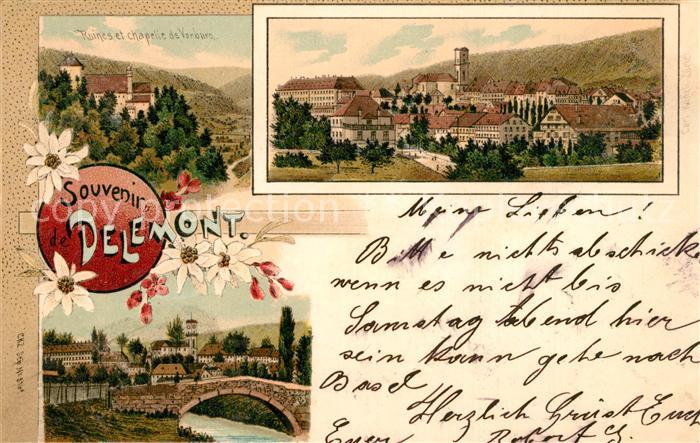 Ruines et chapelle de Vorburg.
Souvenir
de DELÉMONT.
Meine Lieben!
Bitte nichts abschicke
wenn es nicht bis
Samstag Abend hier
sein kann gehe nach
Basel
Herzlich Grüsst Euch
Euer Robert